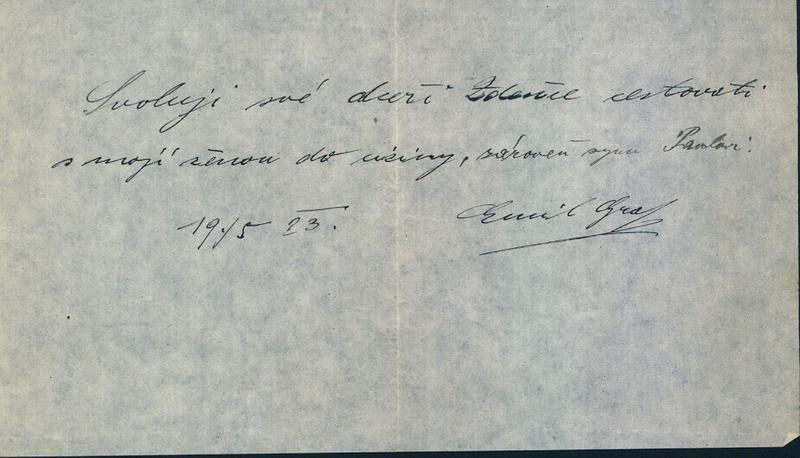 Svoluji své dceři Zdence cestovati
s mojí ženou do ciziny, zároveň synu Pavlovi.
19/5 23. Emil Graf